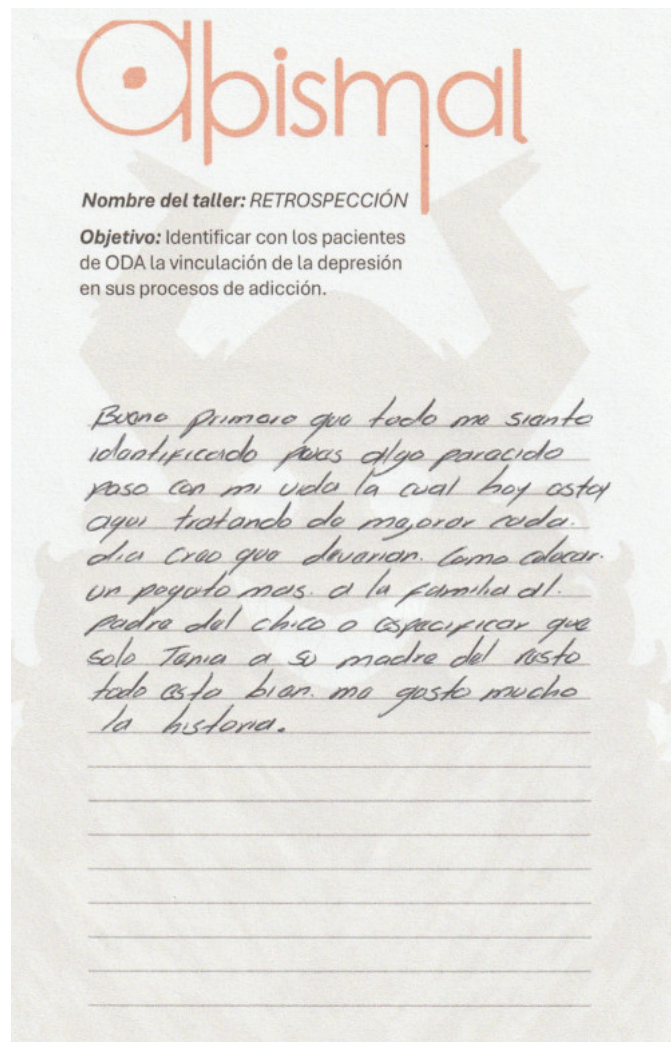 abismal
Nombre del taller: RETROSPECCIÓN
Objetivo: Identificar con los pacientes
de ODA la vinculación de la depresión
en sus procesos de adicción.
Bueno primero que todo me siento
identificado pues algo parecido
paso con mi vida la cual hoy estoy
aqui tratando de mejorar cada.
dia creo que devarian. Como colocar.
un poquito mas. a la familia al.
padre del chico o especificar que
solo Tenia a su madre del resto
todo esta bien. me gusto mucho
la historia.